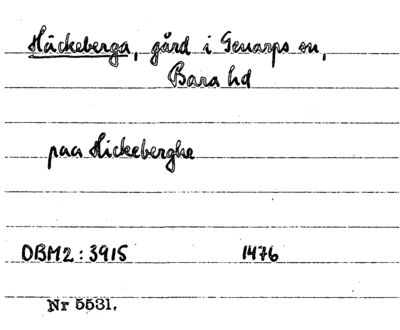 Häckeberga, gård i Genarps sn,
Bara hd
paa Hickeberghe
DBM2:3915 1476
Nr 5531.